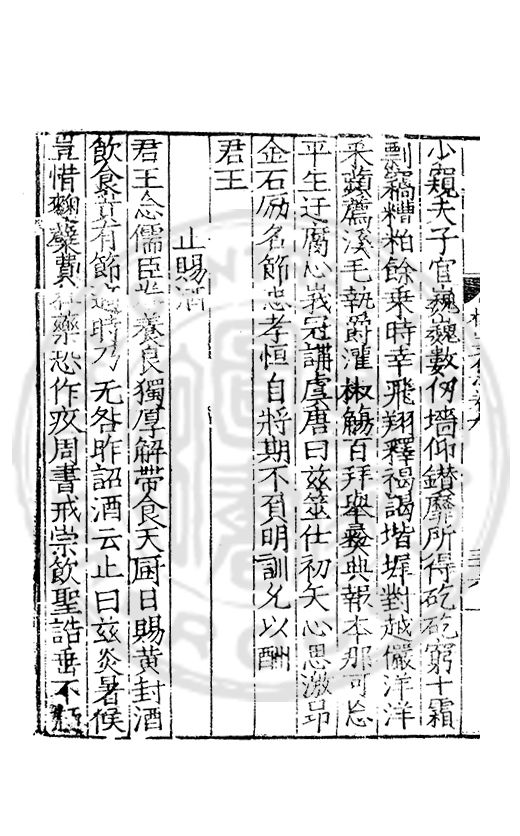 少窺夫子官巍巍數仞墻仰鑽靡所得矻矻窮十霜
剽竊糟粕餘乘時幸飛翔釋褐謁堦墀對越儼洋洋
采蘋薦溪毛執爵灌椒觴百拜舉彝典報本那可忘
平生迂腐心峩冠講虞唐曰茲筮仕初矢心思激昂
金石勵名節忠孝恒自將期不負明訓允以酬
君王
止賜酒
君王念儒臣養良獨厚解帶食天厨日賜黃封酒
飲食貴有節適時乃无咎昨詔酒云止曰茲炎暑候
豈惜麴糵費藥恐作疚周書戒崇飲聖誥垂不